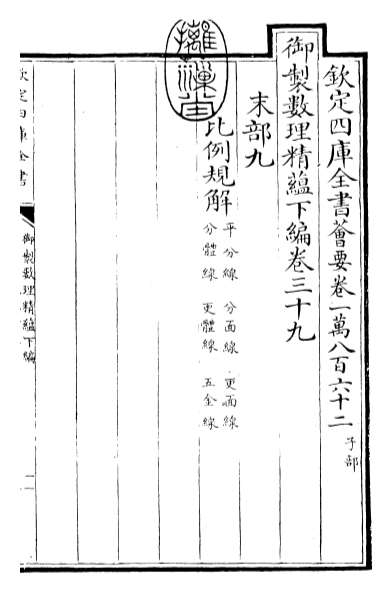 欽定四庫全書薈要卷一萬八百六十二 子部
御製數理精蘊下編卷三十九
末部九
比例規解
平分線 分面線 更面線
分體線 更體線 五金線
欽定四庫全書
御製數理精蘊下編
一
摛藻堂